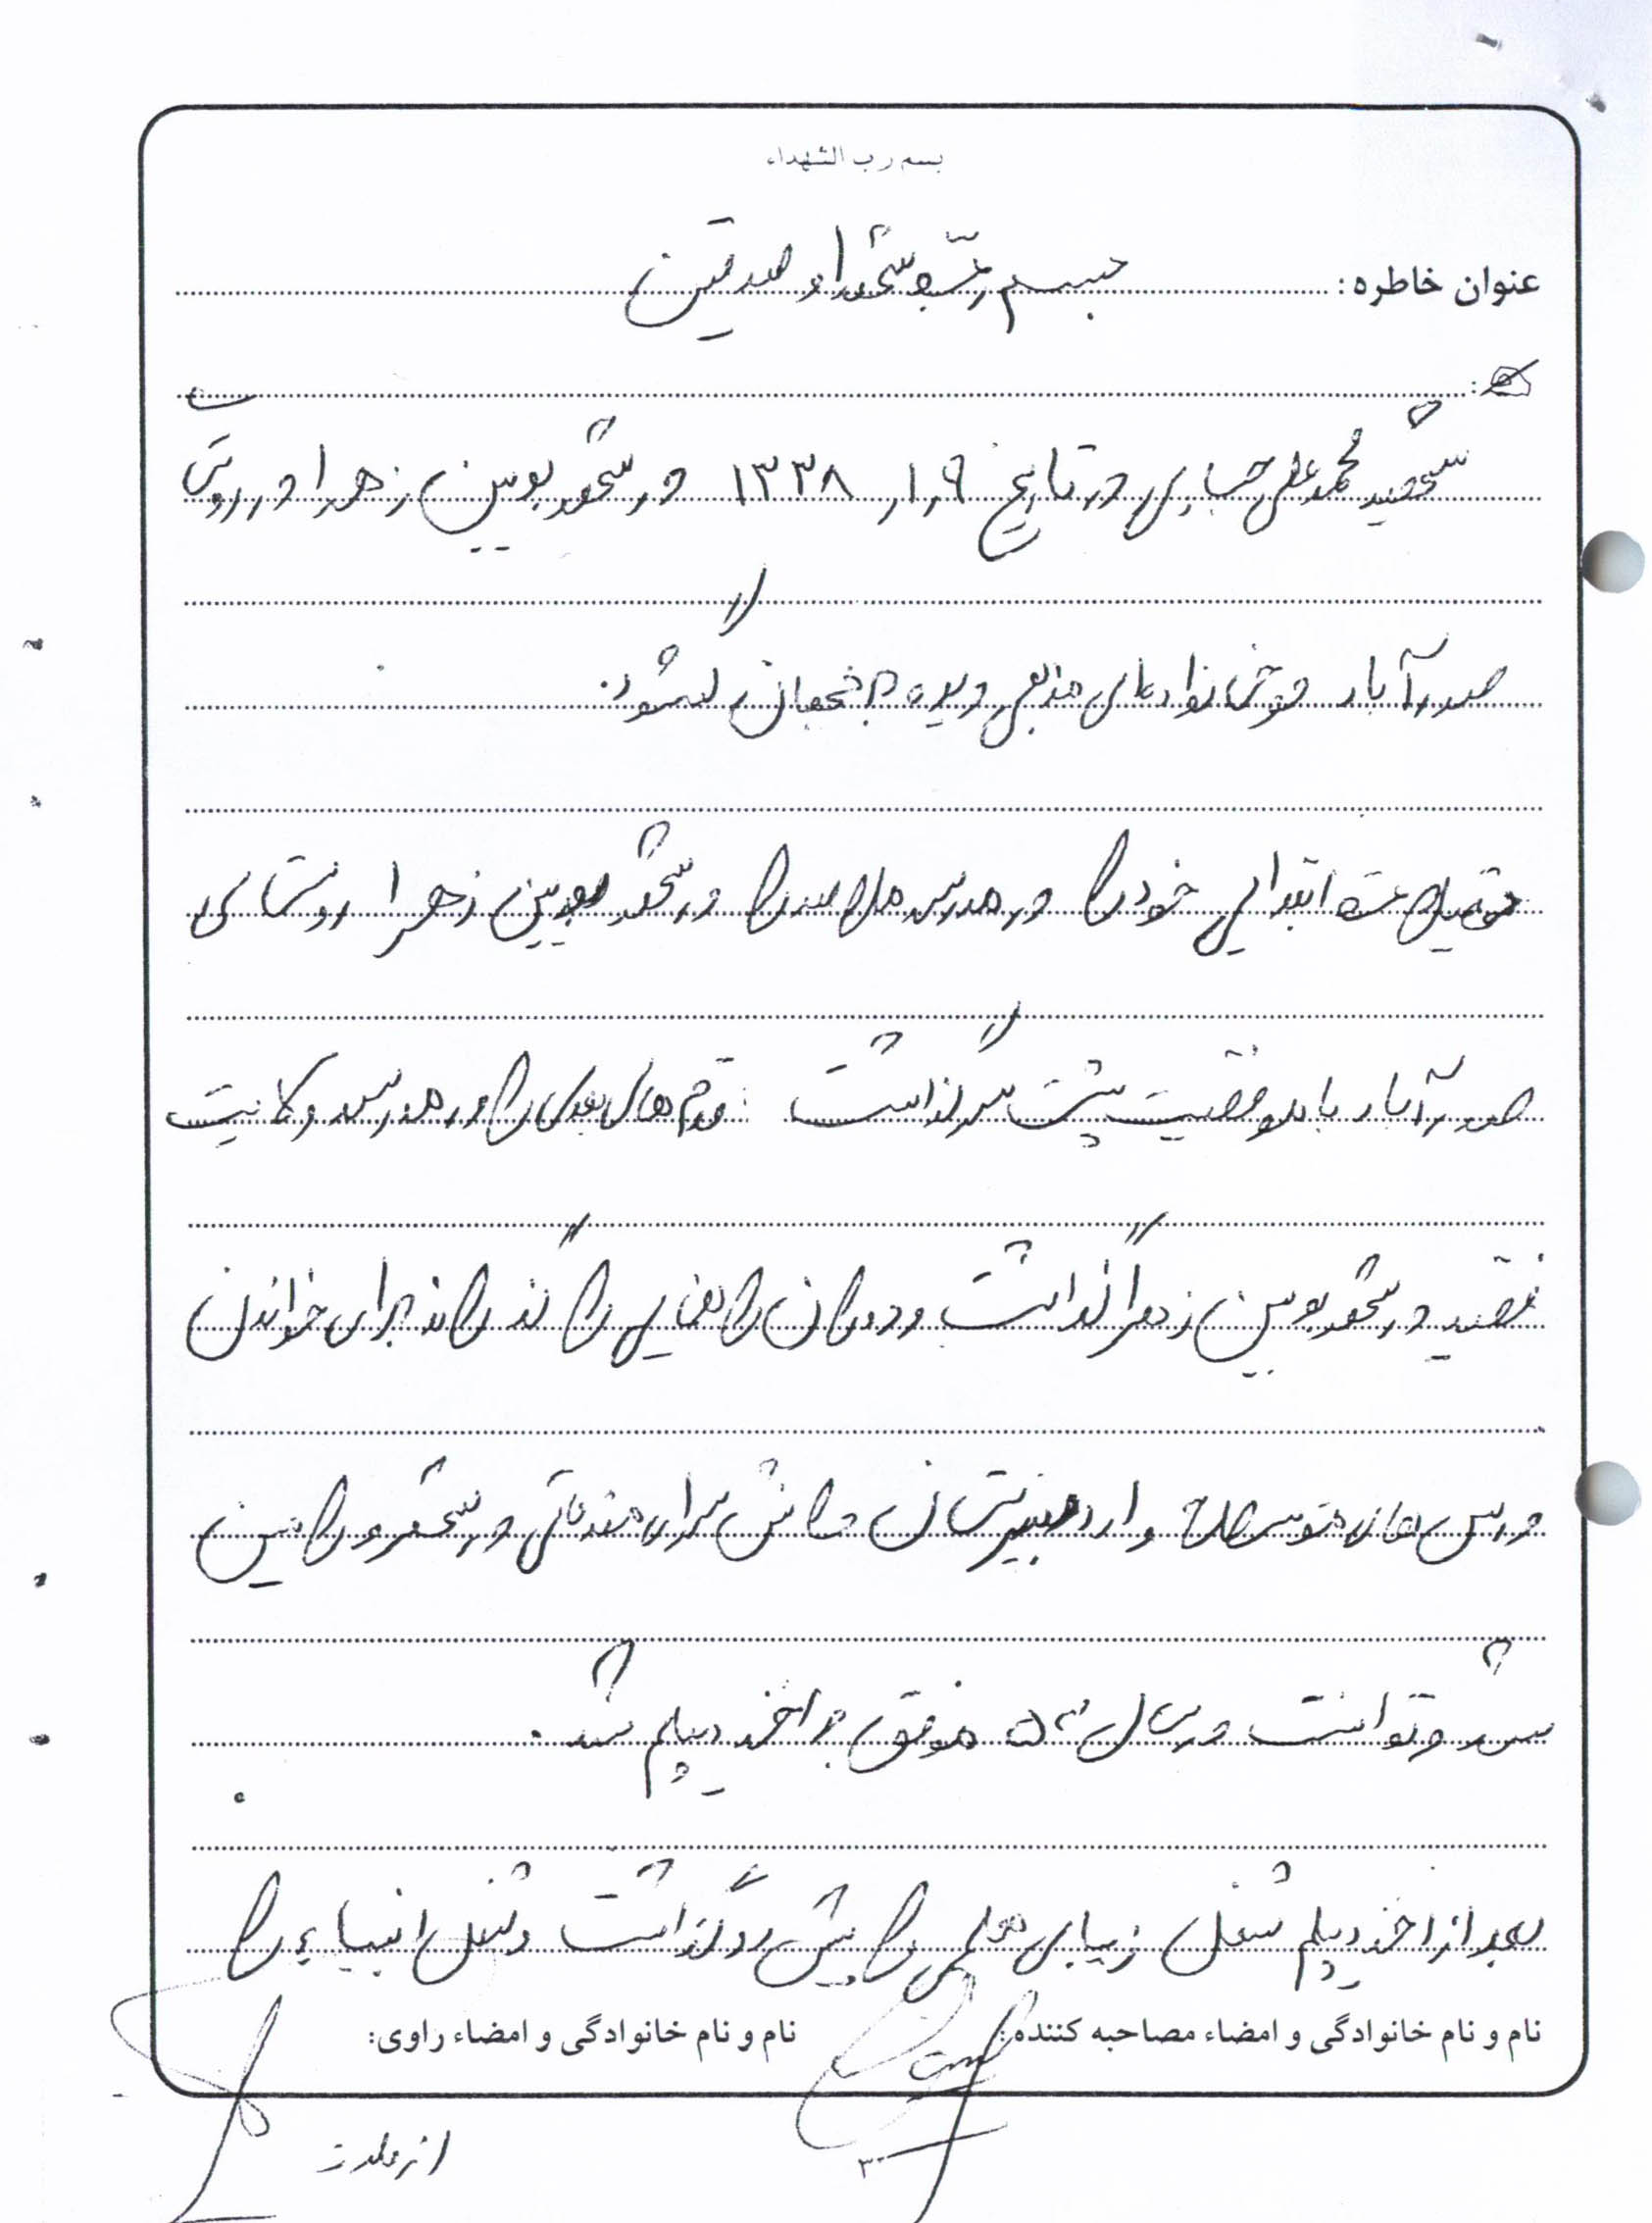 بسم رب الشهداء
عنوان خاطره: بسم رب شهدا و صدیقین
شهید محمد علی حبیبی در تاریخ ۱۳۳۸/۱/۹ در شهر بویین زهرا در روستای
صدرآباد در خانواده‌ای مذهبی دیده به جهان گشود.
تحصیلات ابتدایی خود را در مدرسه ملاصدرا در شهر بویین زهرا روستای
صدرآباد با موفقیت پشت سر گذاشت دوره های بعدی را در مدرسه ولایت
فقیه در شهر بویین زهرا گذاشت و دوران راهنمایی را گذراند برای خواندن
درس های متوسطه وارد دبیرستان دانش سرای مقدماتی در شهر ورامین
شد و توانست در سال ۵۴ موفق به اخذ دیپلم شد.
بعد از اخذ دیپلم شغل زیبای معلمی را پیش رو گذاشت و شغل انبیاء را
نام و نام خانوادگی و امضاء مصاحبه کننده: نام و نام خانوادگی و امضاء راوی:
۳